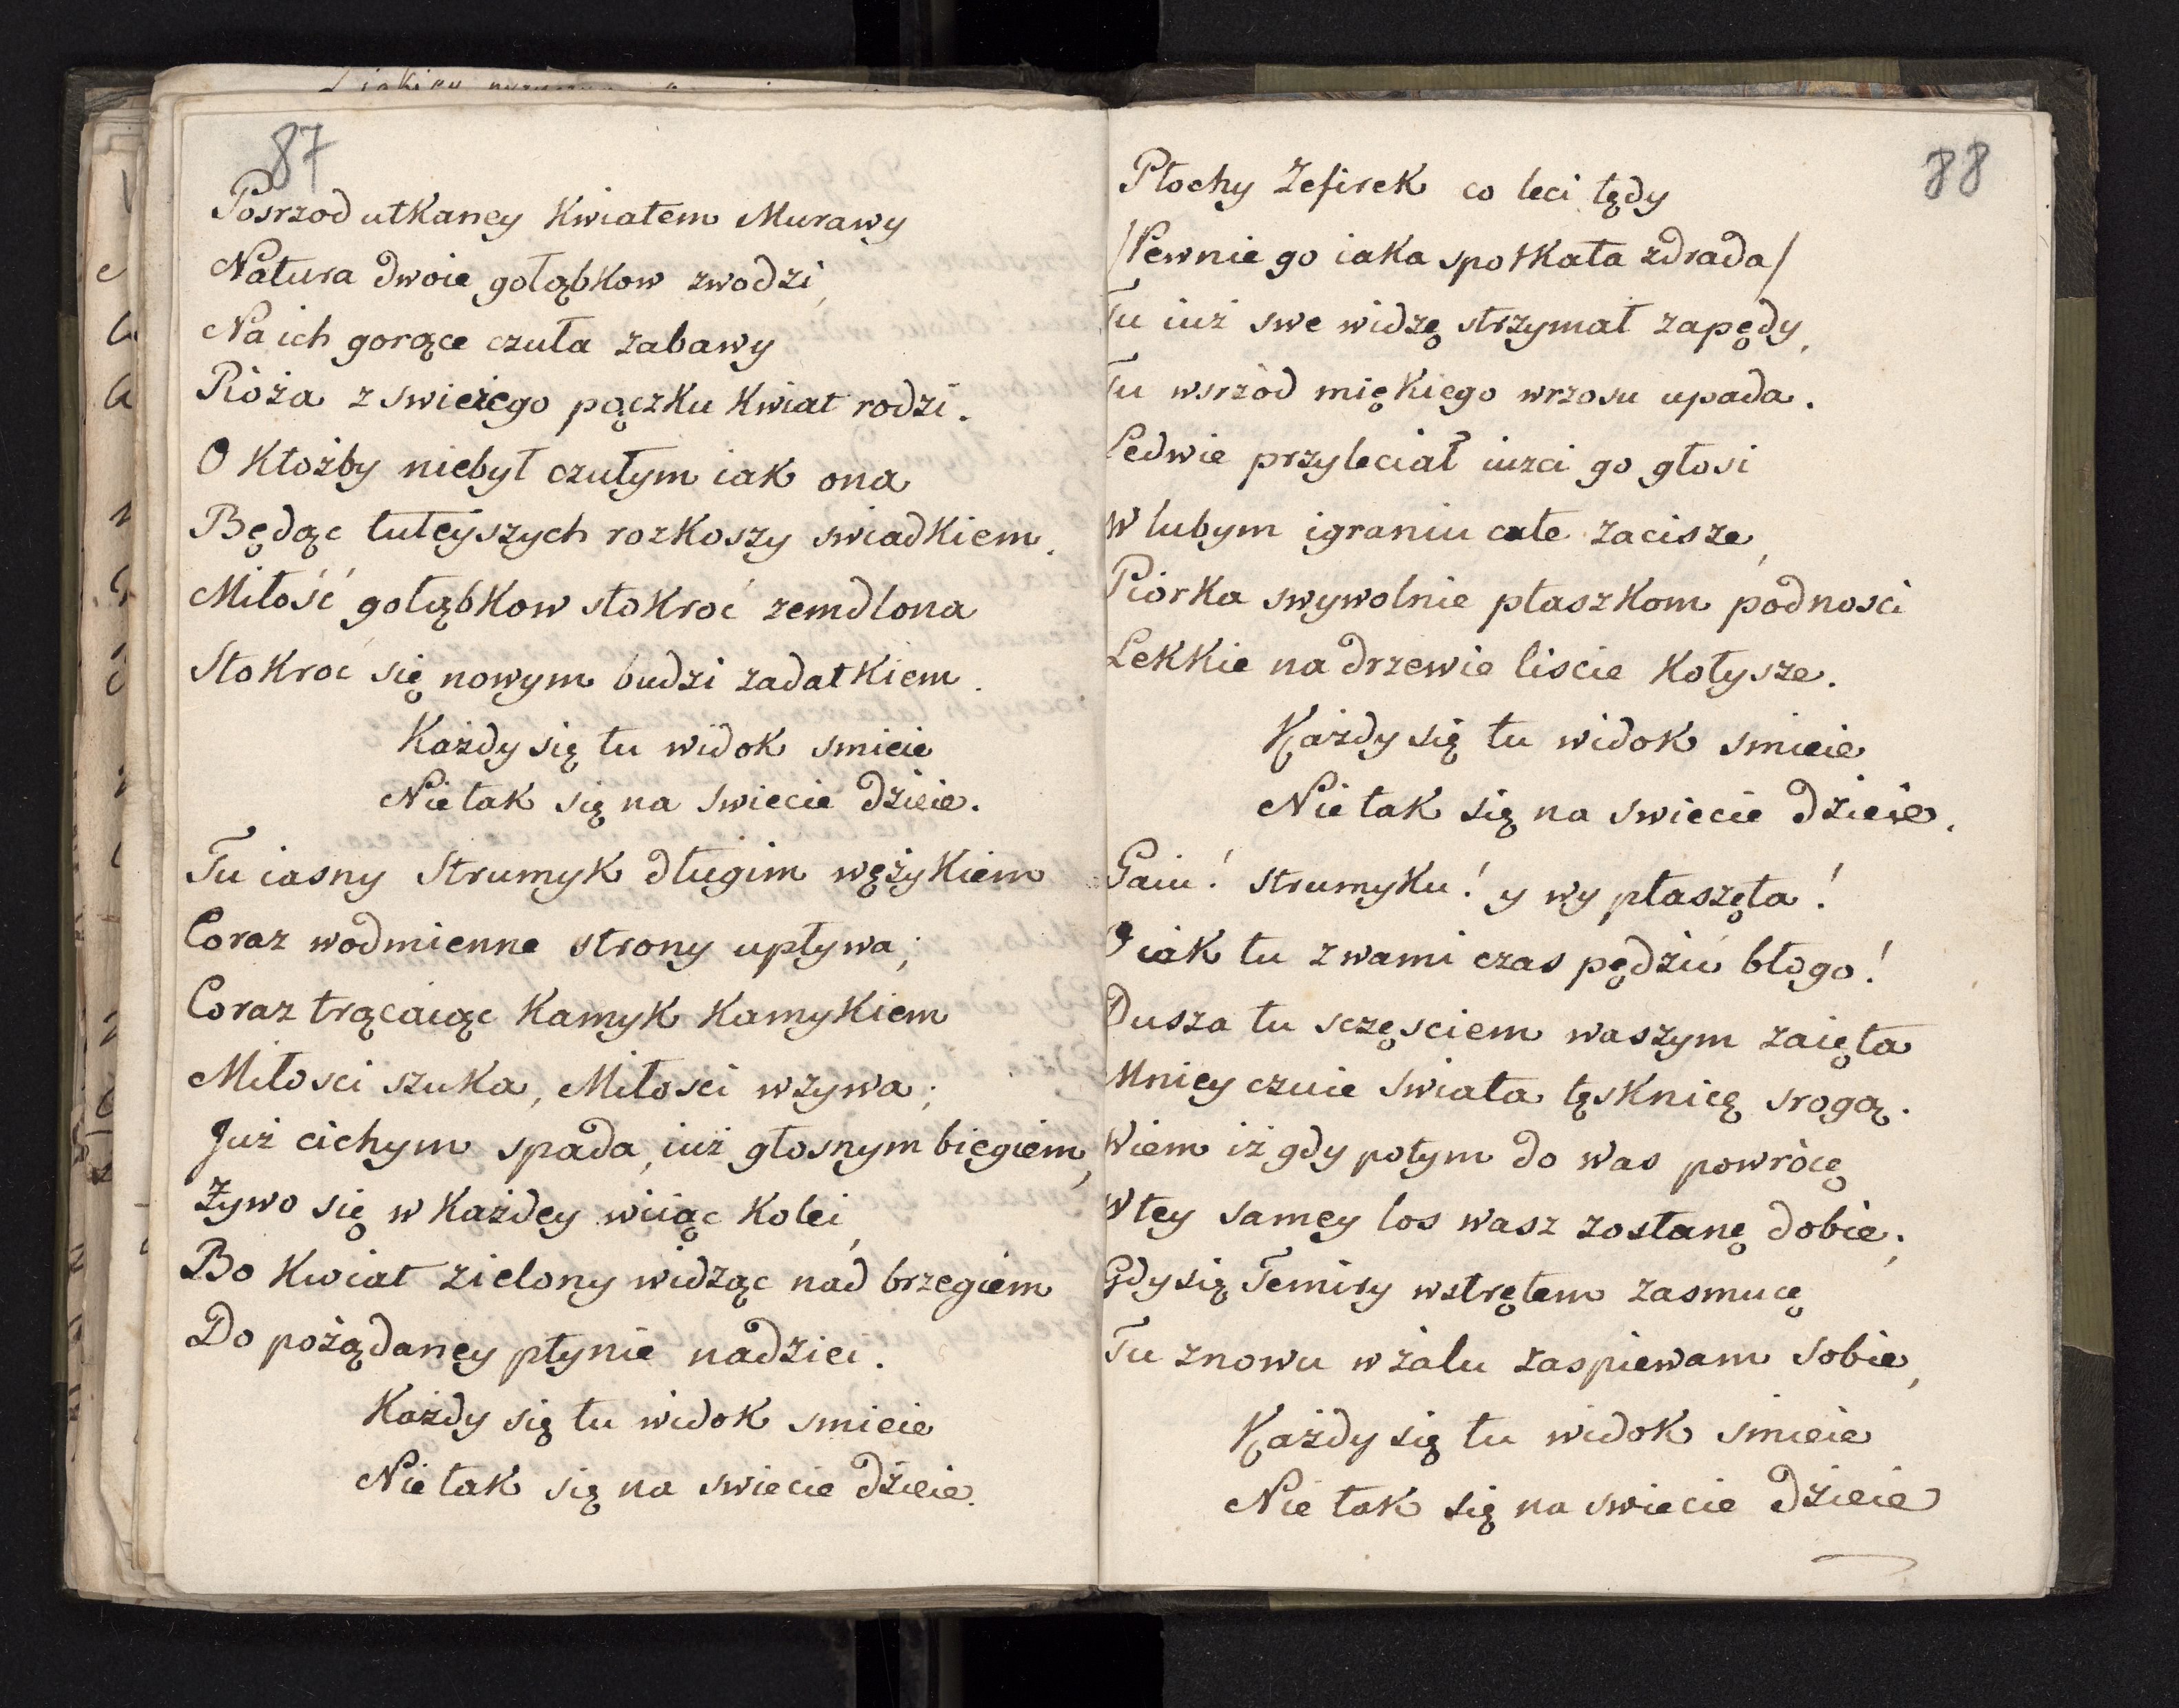 87
Posrzod utkaney Kwiatem Murawy
Natura dwoie gołąbkow zwodzi,
Na ich gorące czuła zabawy
Rόża z swieżego pączku Kwiat rodzi.
O Któżby niebył czułym iak ona
Będąc tuteyszych rozkoszy swiadkiem.
Miłość gołąbkow stokroć zemdlona
Stokroć się nowym budzi zadatkiem.
Każdy się tu widok smieie
Nie tak się na swiecie dzieie.
Tu iasny Strumyk długim wężykiem
Coraz wodmienne strony upływa;
Coraz trącaiąc Kamyk Kamykiem
Miłosci szuka, Miłosci wzywa;
Już cichym spada, iuż głosnym biegiem,
Żywo się w Każdey wiiąc Kolei,
Bo Kwiat zielony widząc nad brzegiem
Do pożądaney płynie nadziei.
Każdy się tu widok smieie
Nie tak się na swiecie dzieie.
88
Płochy Zefirek co leci tędy
/Pewnie go iaka spotkała zdrada/
Tu iuż swe widzę strzymał zapędy,
Tu wsrzód miękiego wrzosu upada.
Ledwie przyleciał iuzci go głosi
W lubym igraniu całe zacisze,
Piórka swywolnie ptaszkom podnosci
Lekkie na drzewie liscie Kołysze.
Każdy się tu widok smieie
Nie tak się na swiecie dzieie.
Gaiu! strumyku! y wy ptaszęta!
O iak tu z wami czas pędzić błogo!
Dusza tu sczęsciem waszym zaięta
Mniey czuie swiata tęsknicę srogą.
Wiem iż gdy potym do was powrócę
W tey samey los wasz zostanę dobie;
Gdy się Temiry wstrętem zasmucę
Tu znowu w żalu zaspiewam sobie,
Każdy się tu widok smieie
Nie tak się na swiecie dzieie